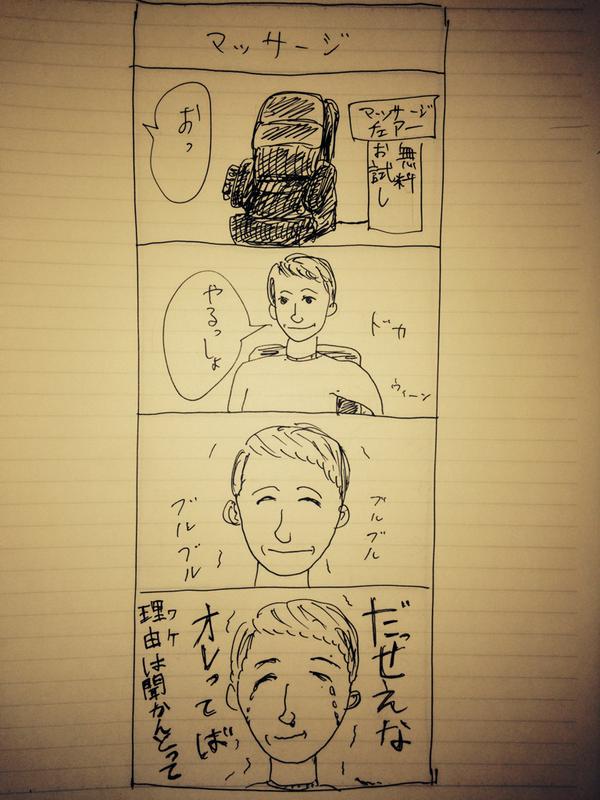 マッサージ
マッサージ
チェアー
無料
お試し
おっ
ドカ
ウィーン
やるっしょ
ブルブル
ブルブル
だっせえな
オレってば
理由は聞かんとって
ワケ